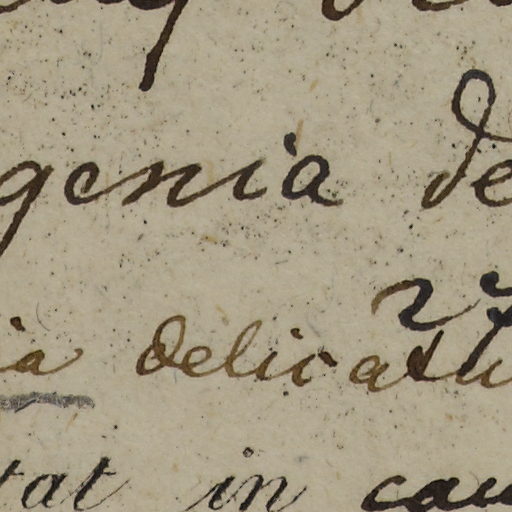 genia de
ia delicatu
tat in cau